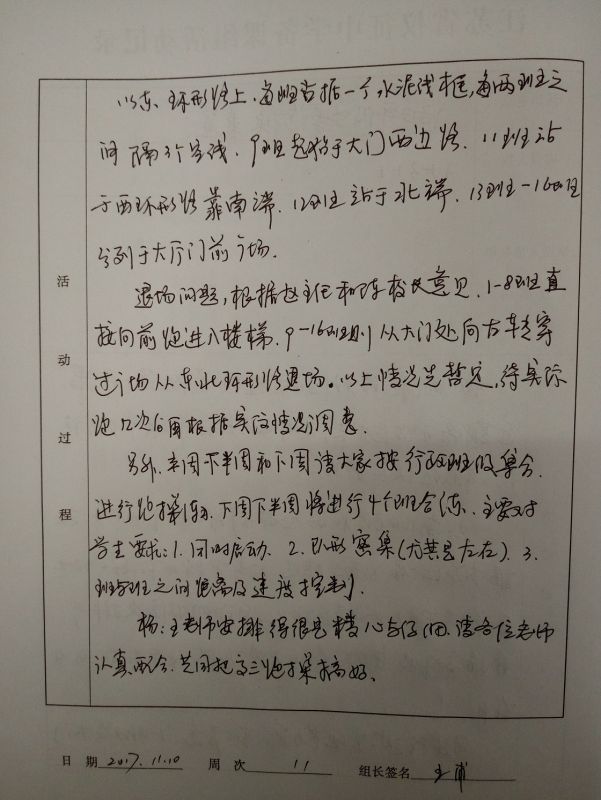 以东、环形路上，每班占据一个水泥线框，每两班之
间隔3个安线．9班起始于大门西边路．11班站
于西环形路靠南端．12班站于北端．13班-16班
分列于大厅门前广场．
退场问题，根据赵主任和陈校长意见．1-8班直
接向前跑进入楼梯．9-16班则从大门处向右转穿
过广场从东北环形路退场。以上情况先暂定，待实际
跑几次后再根据实际情况调整．
另外．本周下半周和下周请大家按行政班级集合．
进行跑操练习．下周下半周将进行4个班合练．主要对
学生要求：1.同时启动．2.队形密集(尤其是左右)．3.
班与班之间距离及速度控制．
杨：王老师安排得很是精心与仔细．请各位老师
认真配合．共同把高三跑操搞好．
活动过程
日 期 2017.11.10 周 次 11 组长签名 王